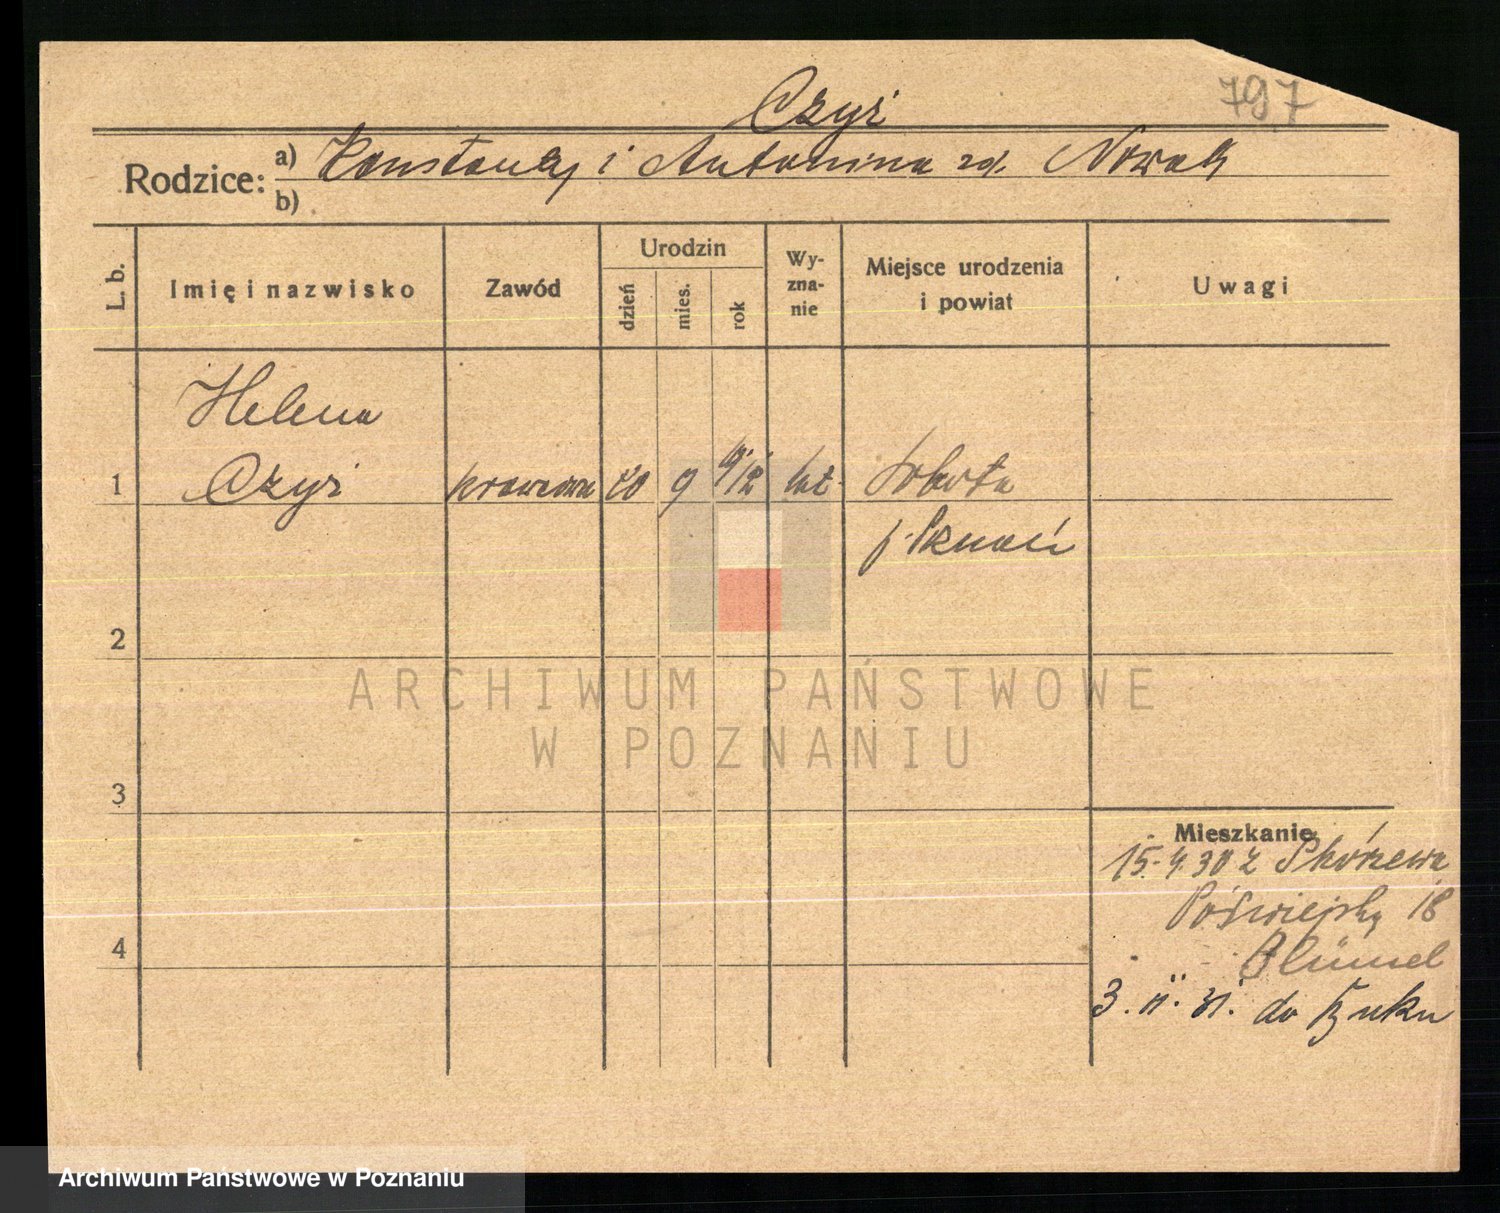 797
Czyż
Rodzice: a) Konstanty i Antonina zd. Nowak
b)
L. b.
Imię i nazwisko
Zawód
Urodzin
dzień
mies.
rok
Wy-
zna-
nie
Miejsce urodzenia
i powiat
Uwagi
Helena
1 Czyż krawcowa 20 9 912 kat. Sobota
p. Poznań
2
3
4
Mieszkanie
15. 4. 30 z Skórzewa
Poświejską 18
Blümel
3. II. 31. do Buku
ARCHIWUM PAŃSTWOWE
W POZNANIU
Archiwum Państwowe w Poznaniu